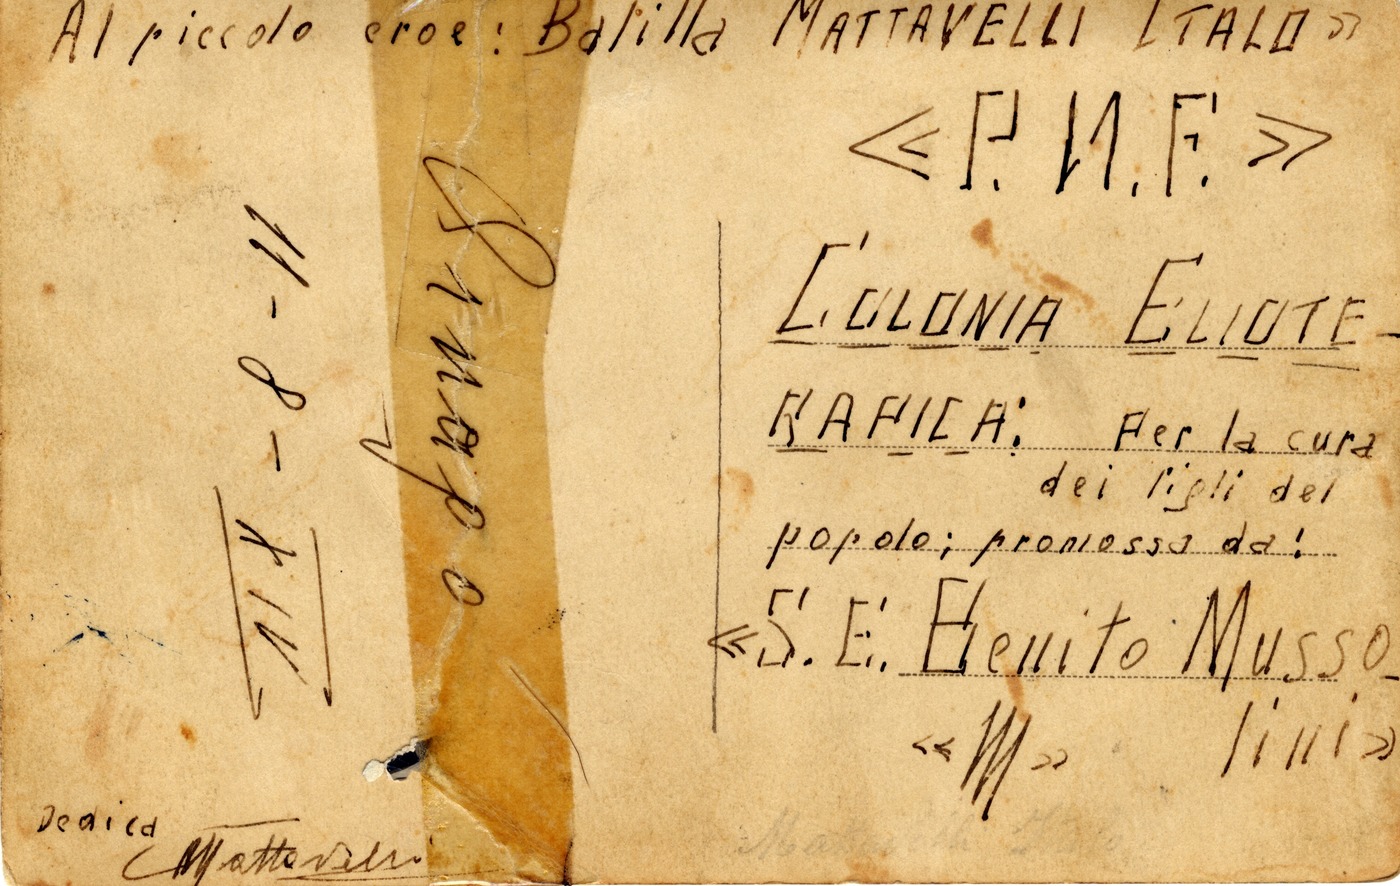 Al piccolo eroe: Balilla MATTAVELLI ITALO»
«P.N.F.»
COLONIA ELIOTE-
RAPICA: Per la cura
dei figli del
popolo; promossa da!
«S.E. Benito Musso-
lini»
«M»
11-8-
Dedica
Mattavelli